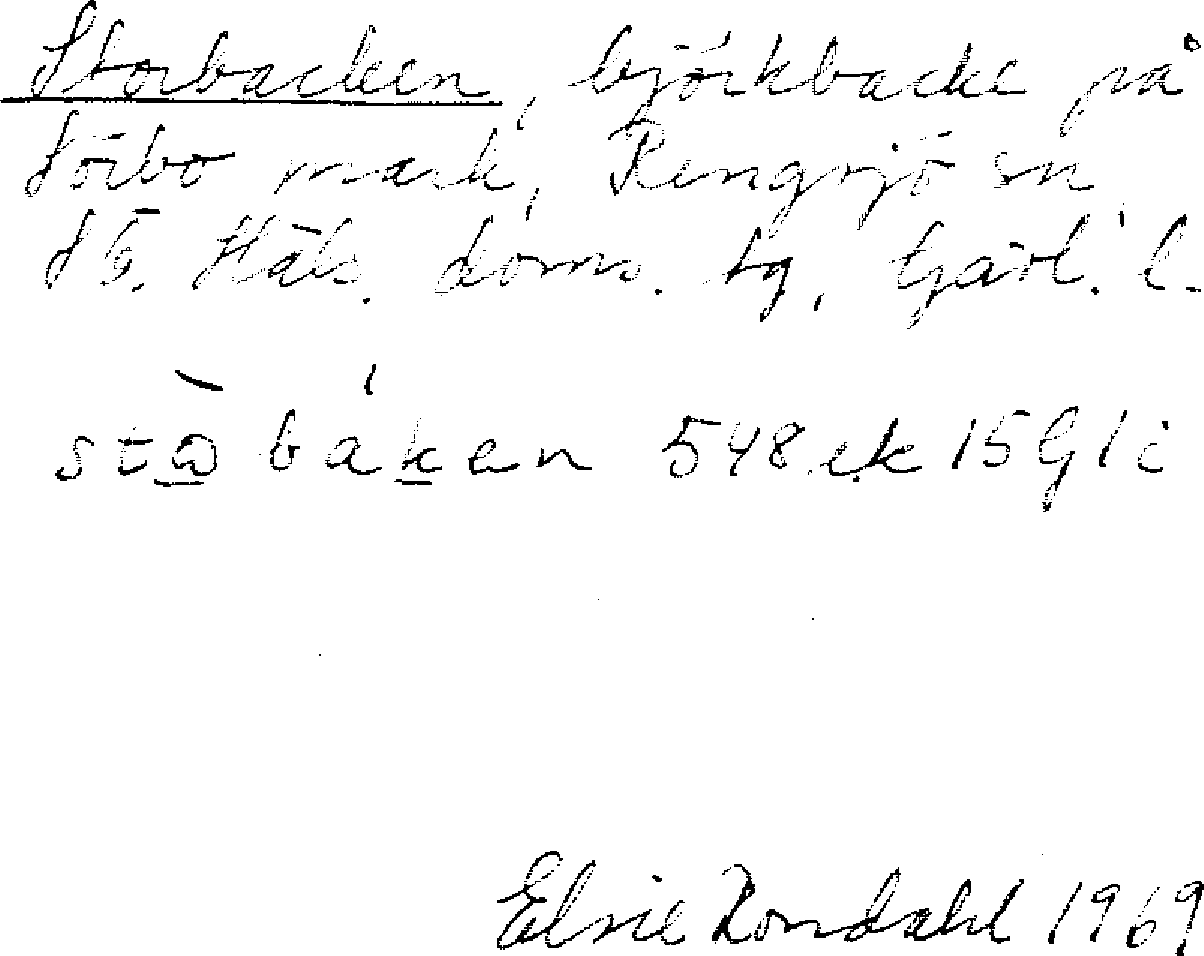 Storbacken, björkbacke på
Sörbo mark, Rengsjö sn
Sö. Häls. doms. tg, Gävl. l.
stω bákan 548 ek 15 G 1 i
Elsie Rondahl 1969